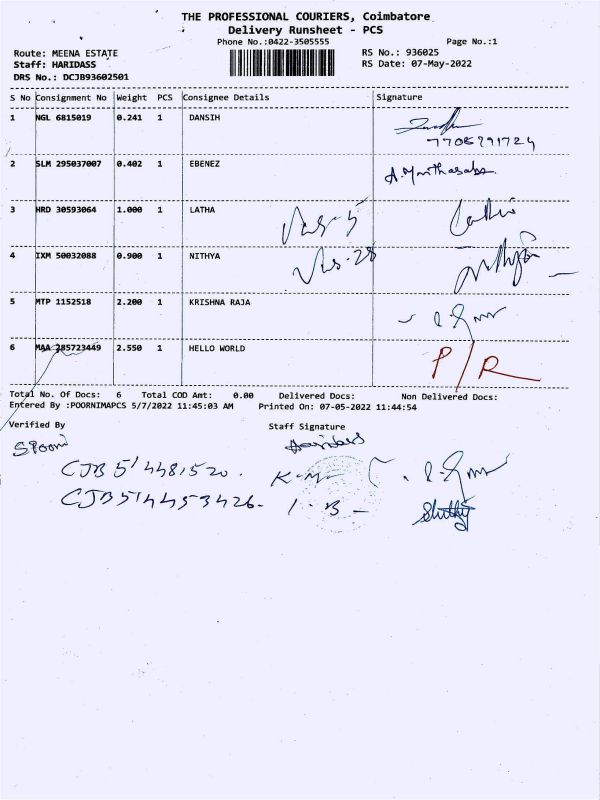 THE PROFESSIONAL COURIERS, Coimbatore
Delivery Runsheet - PCS
Phone No.:0422-3505555 Page No.:1
Route: MEENA ESTATE RS No.: 936025
Staff: HARIDASS RS Date: 07-May-2022
DRS No.: DCJB93602501
S No Consignment No Weight PCS Consignee Details Signature
1 NGL 6815019 0.241 1 DANSIH
7708291724
2 SLM 295037007 0.402 1 EBENEZ
3 HRD 30593064 1.000 1 LATHA
4 IXM 50032088 0.900 1 NITHYA
5 MTP 1152518 2.200 1 KRISHNA RAJA
6 MAA 285723449 2.550 1 HELLO WORLD P/R
Total No. Of Docs: 6 Total COD Amt: 0.00 Delivered Docs: Non Delivered Docs:
Entered By :POORNIMAPCS 5/7/2022 11:45:03 AM Printed On: 07-05-2022 11:44:54
Verified By Staff Signature
Haridass
CJB 514481520.
CJB 514453426.